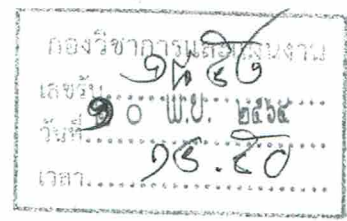 กองวิชาการและแผนงาน
เลขรับ
วันที่ ๑๐ พ.ย. ๒๕๖๔
เวลา ๑๕.๕๐